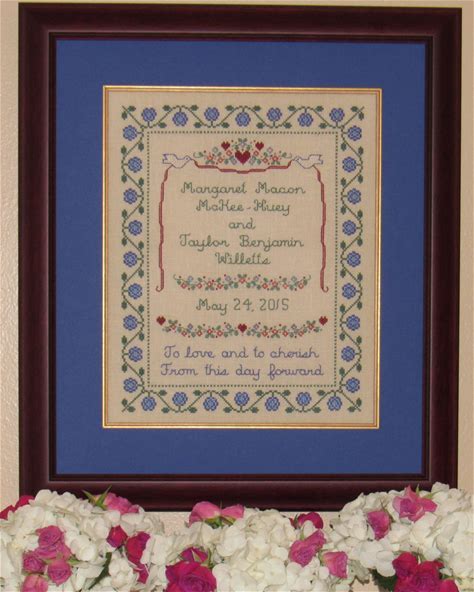 Margaret Macon
McKee-Huey
and
Taylor Benjamin
Willetts
May 24, 2015
To love and to cherish
From this day forward